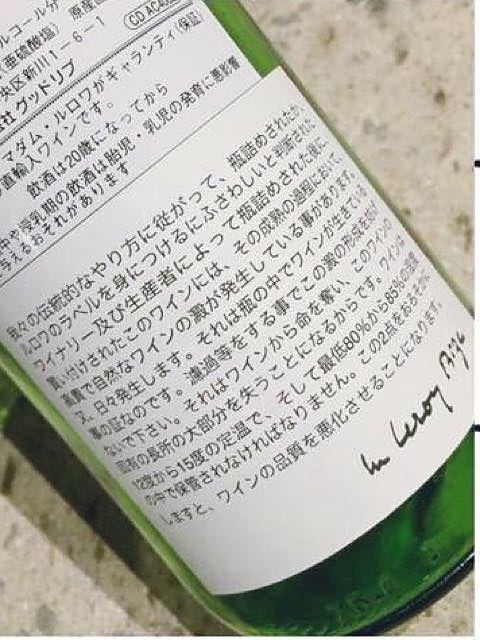 ルコール分
(亜硫酸塩) 原産国
央区新川1-6-1
社 グッドリブ CD AC40
マダム・ルロワがギャランティ(保証)
直輸入ワインです。
飲酒は20歳になってから
中や授乳期の飲酒は胎児・乳児の発育に悪影響
与えるおそれがあります
我々の伝統的なやり方に従がって、瓶詰めされたか、
ルロワのラベルを身につけるにふさわしいと判断された
ワイナリー及び生産者によって瓶詰めされた後に
買い付けされたこのワインには、その成熟の過程において、
高貴で自然なワインの澱が発生している事があります。
又、日々発生します。それは瓶の中でワインが生きている
事の証なのです。濾過等をする事でこの澱の形成を妨げ
ないで下さい。それはワインから命を奪い、このワインの
固有の長所の大部分を失うことになるからです。ワインは
12度から15度の定温で、そして最低80%から85%の湿度
の中で保管されなければなりません。この2点をあやまりま
しますと、ワインの品質を悪化させることになります。
Leroy